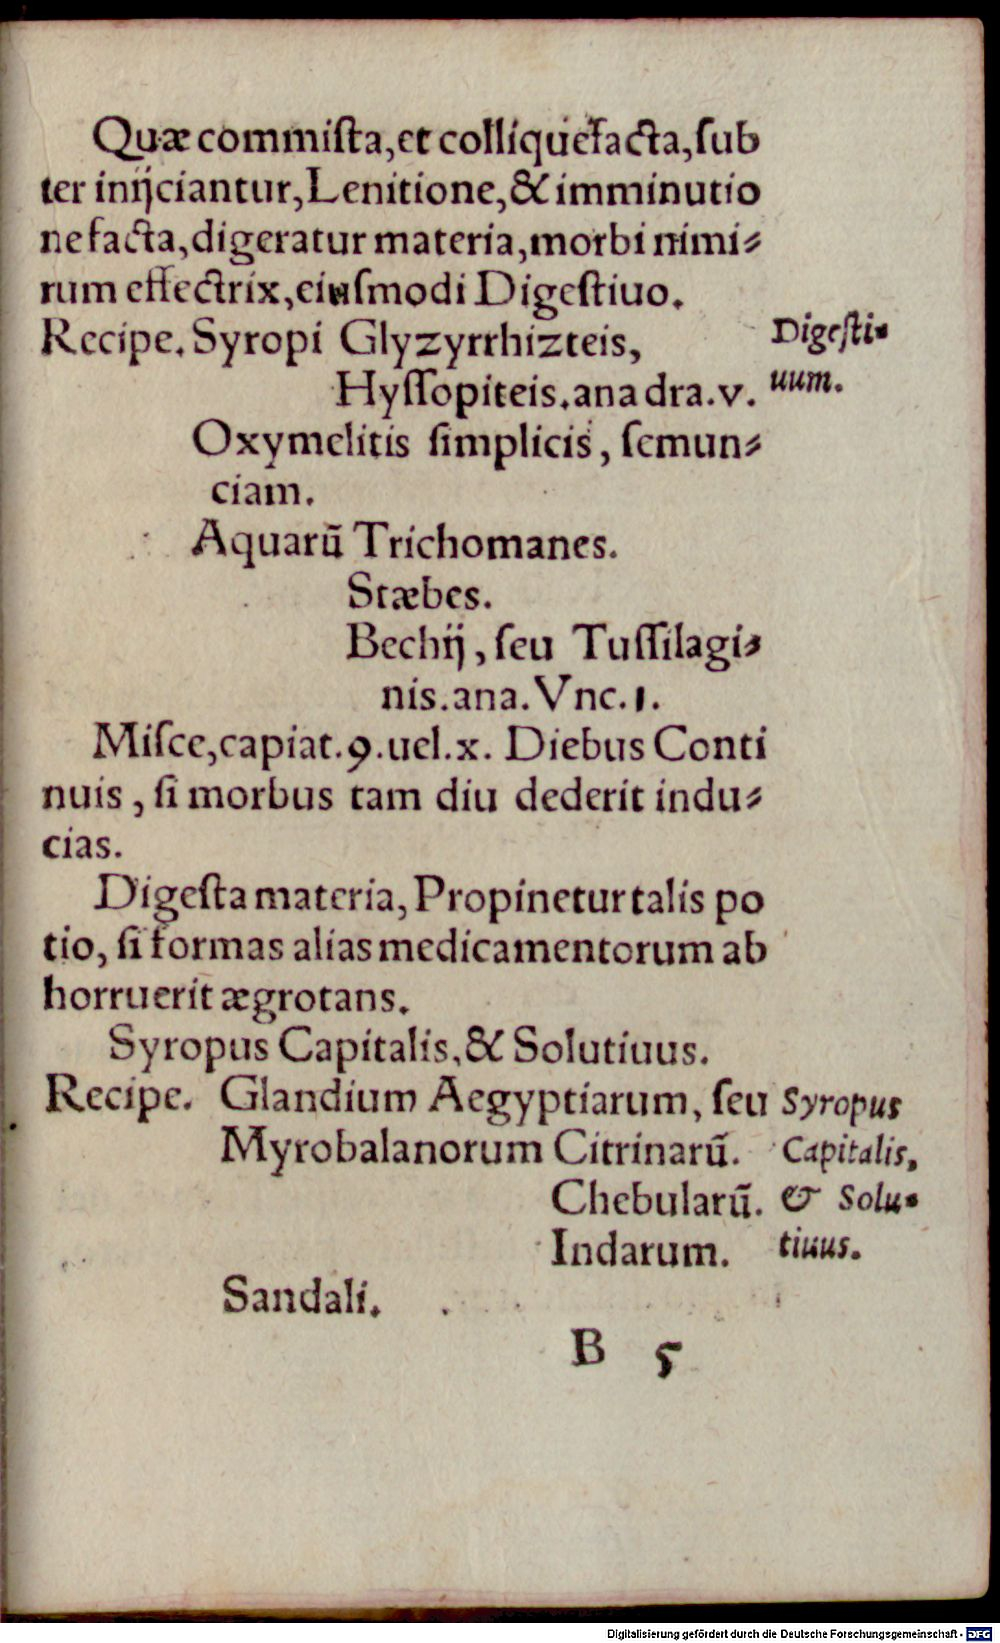 Quæ commiſta, et colliquefacta, ſub
ter inijciantur, Lenitione, & imminutio
ne facta, digeratur materia, morbi nimi⸗
rum effectrix, eiuſmodi Digeſtiuo.
Recipe. Syropi Glyzyrrhizteis,
Digeſti⸗
Hyſſopiteis. ana dra. v.
uum.
Oxymelitis ſimplicis, ſemun⸗
ciam.
Aquarū Trichomanes.
Stæbes.
Bechij, ſeu Tuſſilagi⸗
nis. ana. Vnc. 1.
Miſce, capiat. 9. uel. x. Diebus Conti
nuis, ſi morbus tam diu dederit indu⸗
cias.
Digeſta materia, Propinetur talis po
tio, ſi formas alias medicamentorum ab
horruerit ægrotans.
Syropus Capitalis, & Solutiuus.
Recipe. Glandium Aegyptiarum, ſeu
Syropus
Myrobalanorum Citrinarū.
Capitalis,
Chebularū.
& Solu⸗
Indarum.
tiuus.
Sandali.
B 5
Digitalisierung gefördert durch die Deutsche Forschungsgemeinschaft - DFG